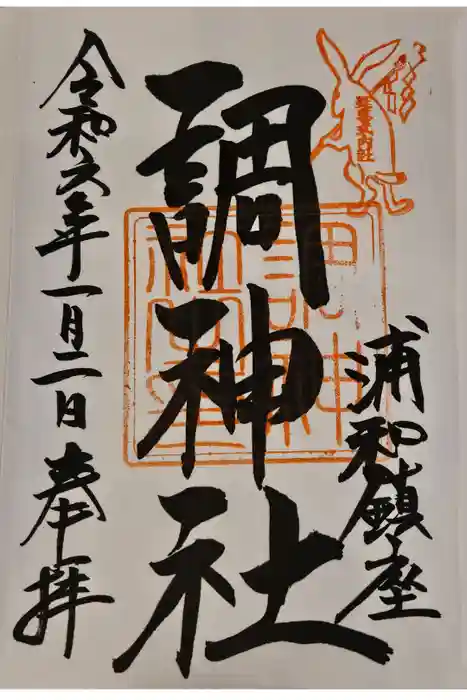 浦和鎮座
調神社
令和六年一月二日奉拝
延喜式内社